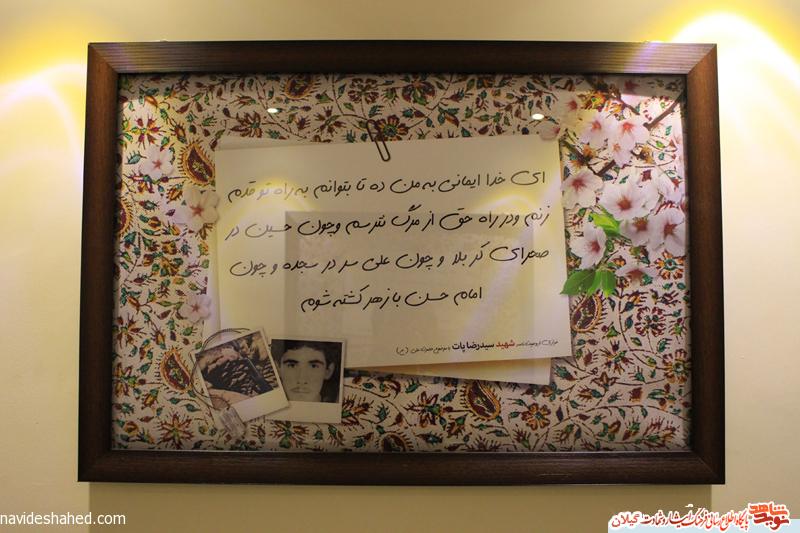 ای خدا ایمانی به من ده تا بتوانم به راه تو قدم
زنم ودر راه حق از مرگ نترسم وچون حسین در
صحرای کربلا و چون علی سر در سجده و چون
امام حسن با زهر کشته شوم
فرازی از وصیت نامه شهید سیدرضا پات با موضوع حضرت علی (ع)
navideshahed.com
نوید شاهد پایگاه اطلاع رسانی فرهنگ ایثار و شهادت گیلان